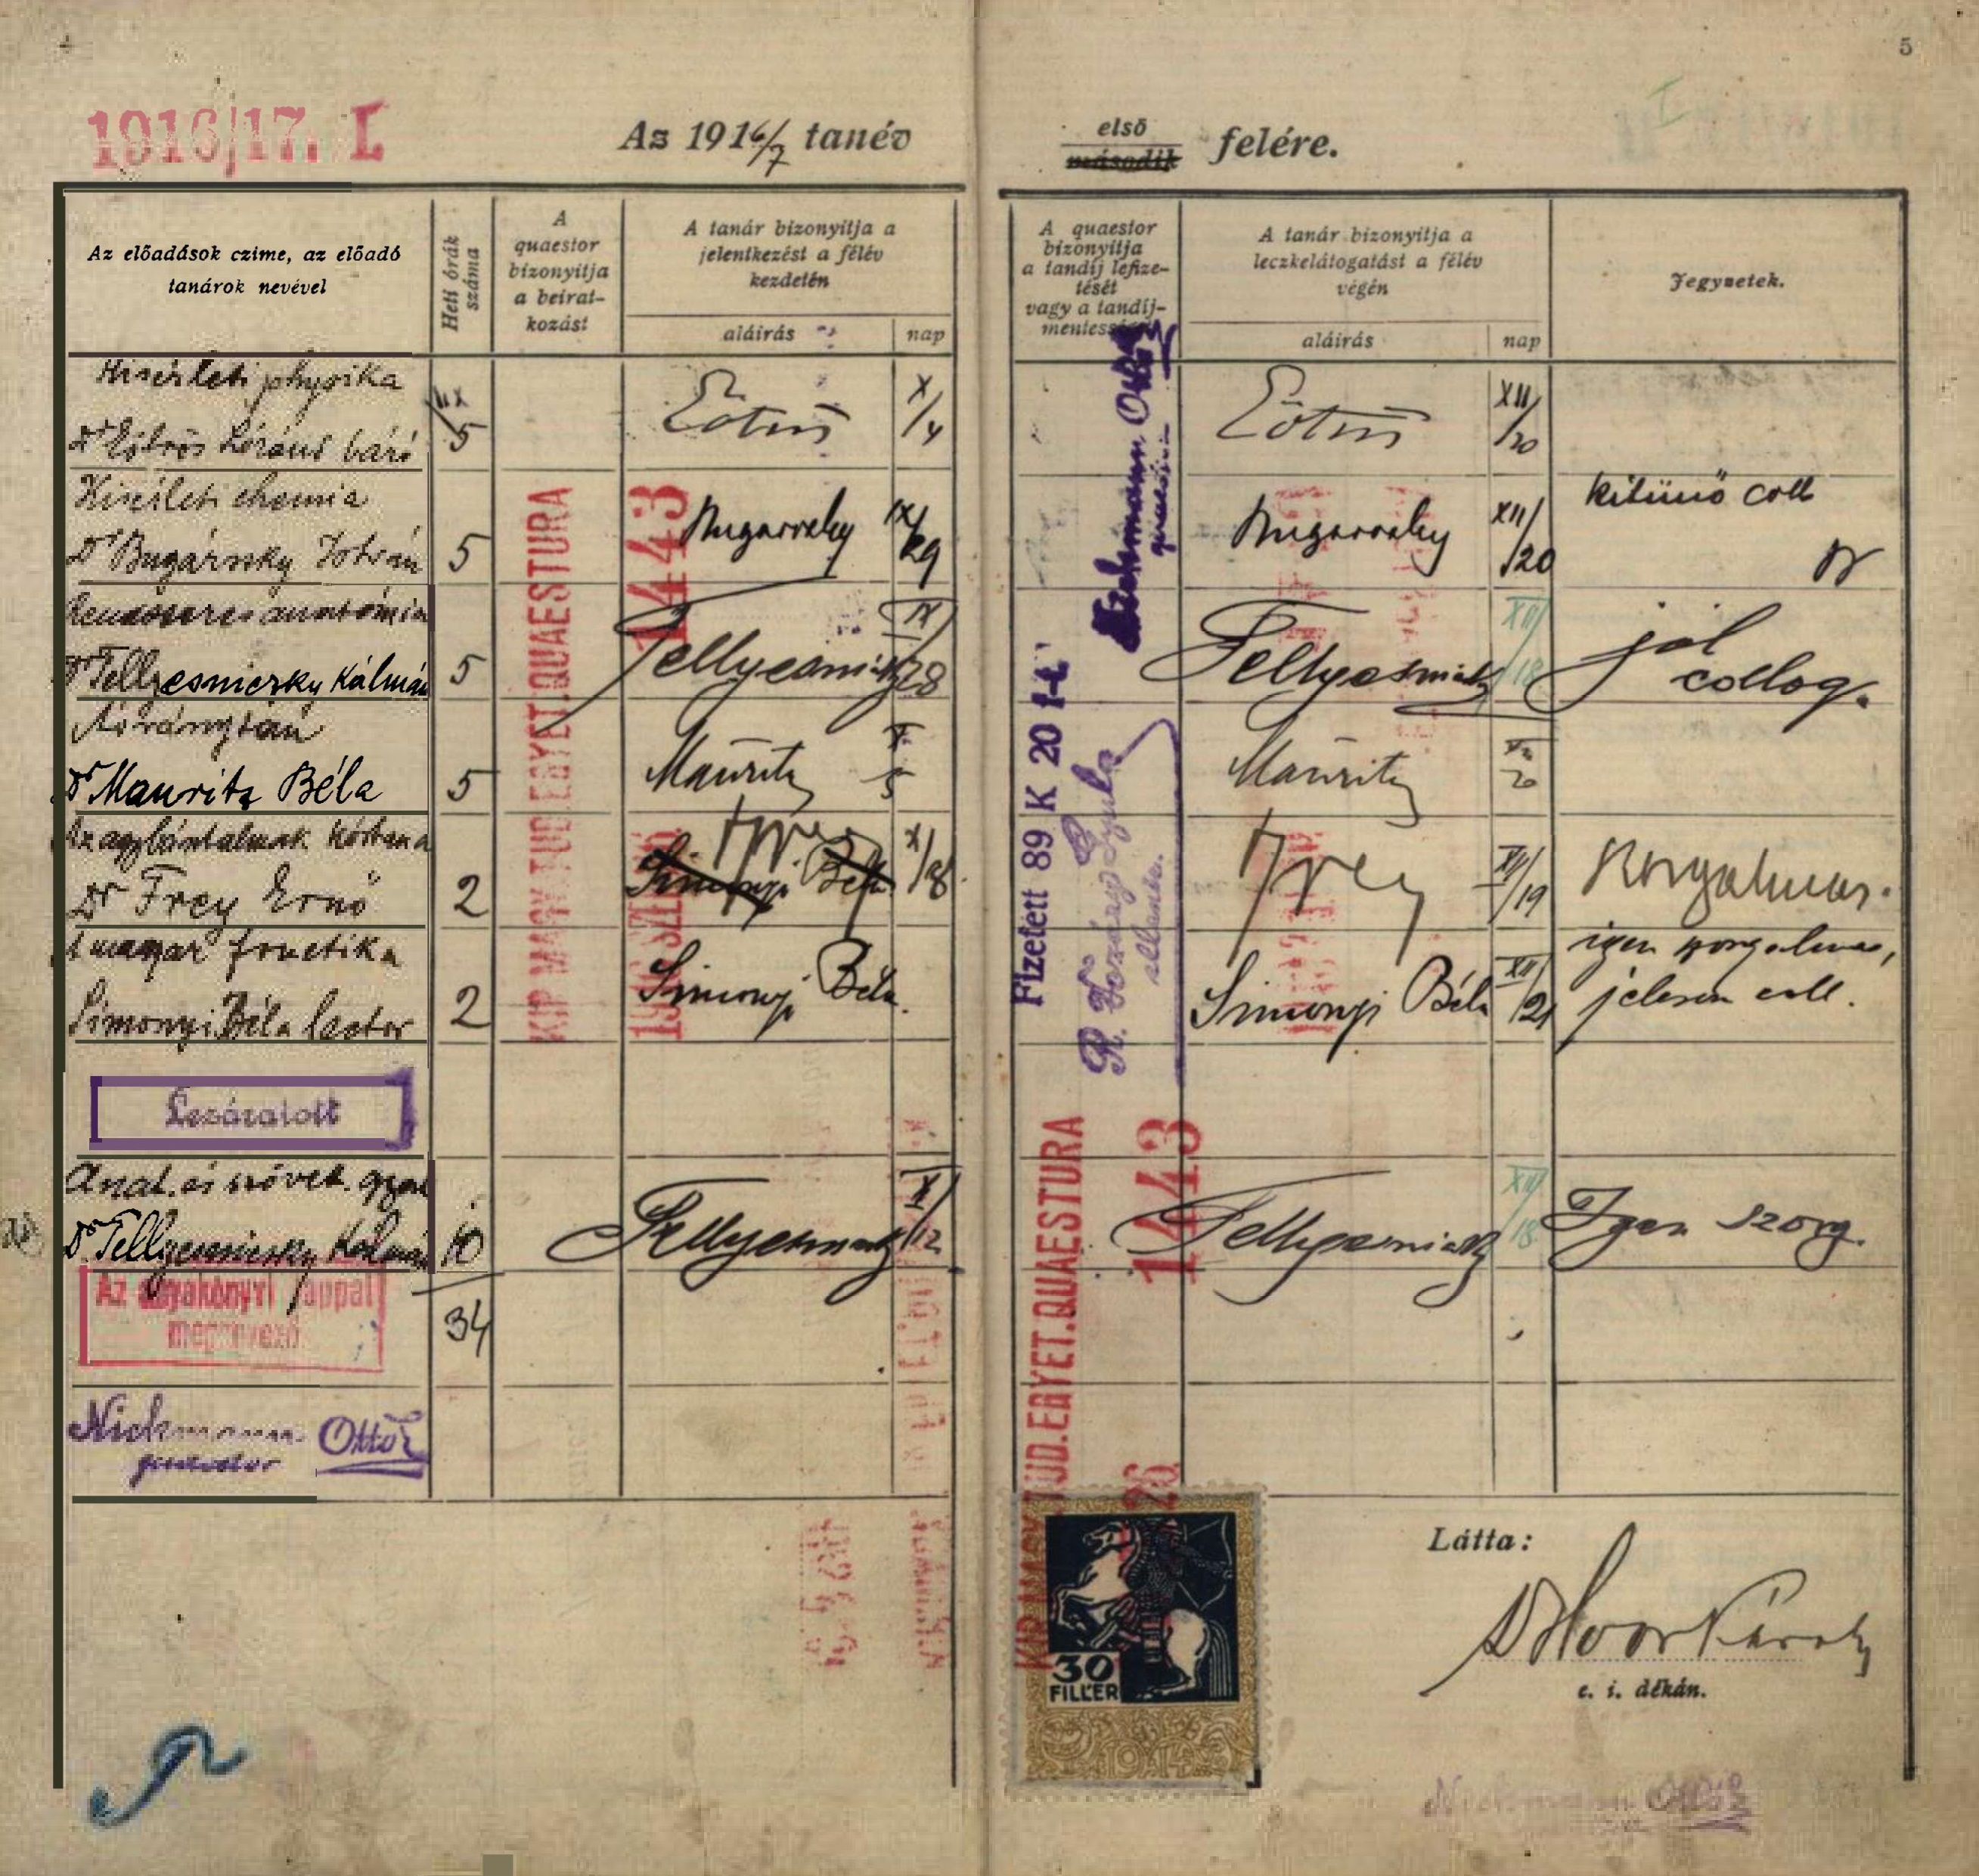 5
1916/17. I.
Az 1916/7 tanév
első
második
felére.
Az előadások czime, az előadó
tanárok nevével
Heti órák
száma
A
quaestor
bizonyitja
a beirat-
kozást
A tanár bizonyitja a
jelentkezést a félév
kezdetén
aláirás
nap
A quaestor
bizonyitja
a tandij lefize-
tését
vagy a tandij-
A tanár bizonyitja a
leczkelátogatást a félév
végén
aláirás
nap
Jegyzetek.
Kisérleti physika
Dr Eötvös Loránd báró
5
Eötvös
X/4
Eötvös
XII/20
Kisérleti chemia
Dr Bugárszky István
5
Bugarszky
IX/29
Bugarszky
XII/20
kitünő coll
Rendszeres anatómia
Dr Tellyesniczky Kálmán
5
Tellyesniczky
IX/28
Tellyesniczky
XII/18
jól
colloq.
Ásványtan
Dr Mauritz Béla
5
Mauritz
X 5
Mauritz
XII 20
Az agybántalmak
Dr Frey Ernő
2
Frey
Simonyi Béla
X/18
Frey
XII/19
Szorgalmas.
A magyar fonetika
Simonyi Béla lector
2
Simonyi Béla.
Simonyi Béla
XII/21
igen szorgalmas,
jelesen coll.
Lezáratott
Anat. és szövet. gyak
Dr. Tellyesniczky Kálmán
10
Tellyesniczky
IX/12
Tellyesniczky
XII/18
Igen szorg.
34
Az anyakönyvi lappal
megegyező.
Nickmann Ottó
quaestor
KIR. MAGY. TUD. EGYET. QUAESTURA
1443
Nickmann Ottó
quaestor
Fizetett 89 K 20 f-t
KIR. MAGY. TUD. EGYET. QUAESTURA
1443
30
FILLÉR
1914
Látta:
e. i. dékán.
Nickmann Ottó